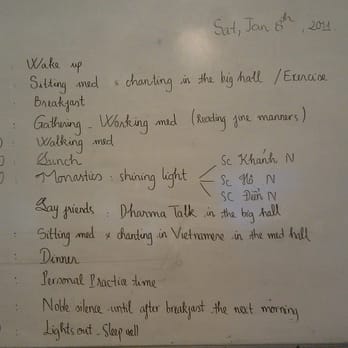 Sat, Jan 8th, 2011
: Wake up
: Sitting med & chanting in the big hall / Exercise
: Breakfast
: Gathering - Working med (Reading fine manners)
: Walking med
: Lunch
: Monastics : shining light
SC Khánh N
SC Hộ N
SC Điển N
: Lay friends : Dharma Talk in the big hall
: Sitting med & chanting in Vietnamese in the med hall
: Dinner
: Personal Practice time
: Noble silence until after breakfast the next morning
: Lights out - Sleep well